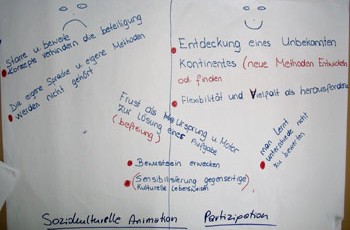 Starre u. bewerte
Konzepte verhindern die beteiligung
Die eigene Sprache u. eigene Methoden
werden nicht gehört
Entdeckung eines Unbekannten
Kontinentes (neue Methoden Entwickeln
od. finden
Flexibilität und Vielfalt als herausforderung
Frust als Ursprung u. Motor
zur Lösung einer Aufgabe
(befreiung)
Bewustsein erwecken
(Sensibilisierung gegenseitige)
Kulturelle
man lernt
unterschiede nicht
zu bewerten
Soziokulturelle Animation Partizipation